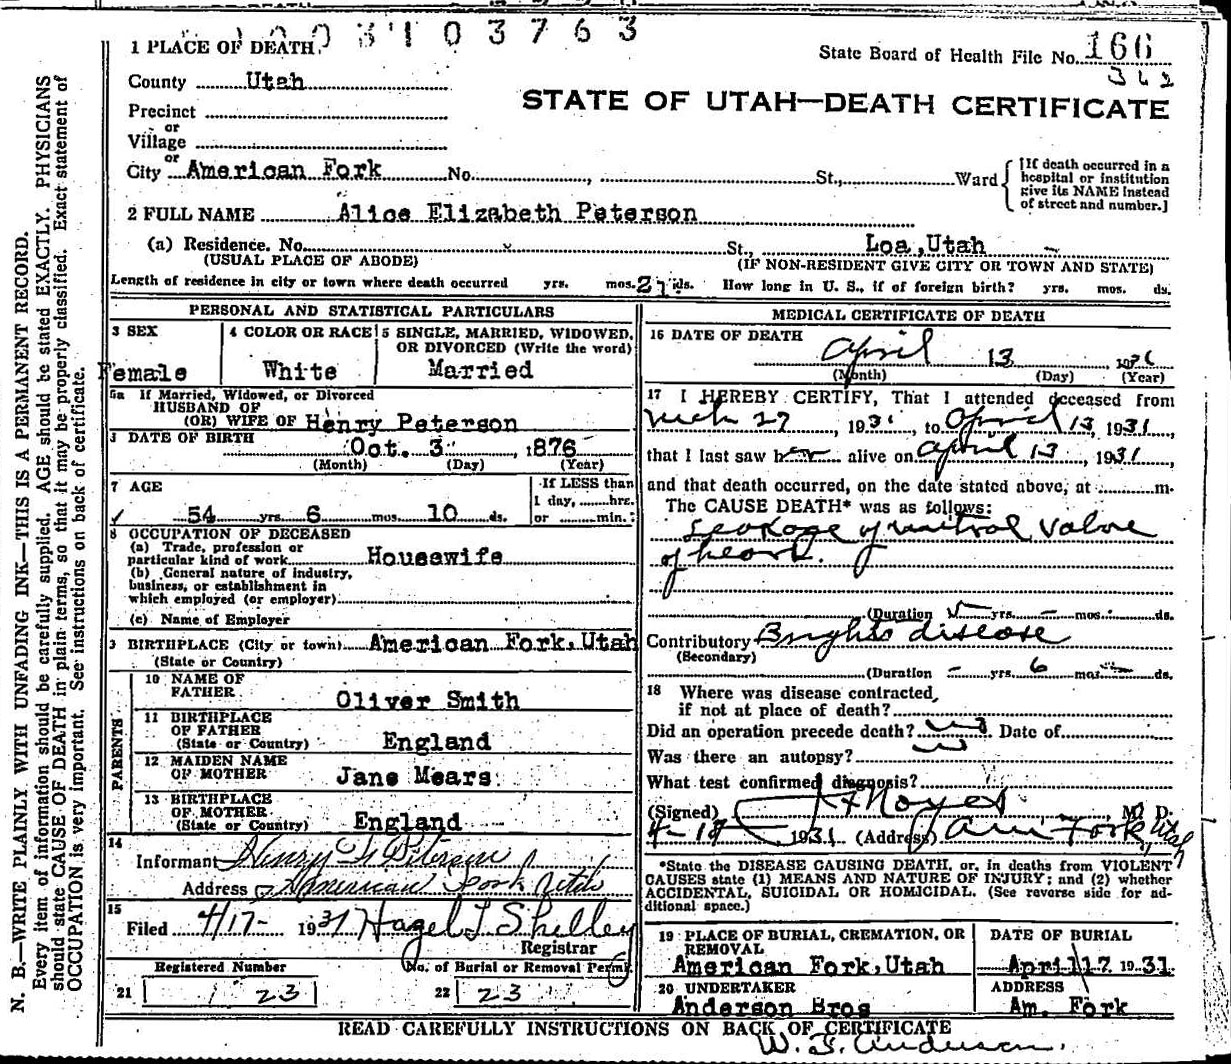 1003103763
1 PLACE OF DEATH
State Board of Health File No. 166
362
County Utah
STATE OF UTAH—DEATH CERTIFICATE
Precinct
or
Village
or
City American Fork No. , St., Ward
[If death occurred in a
hospital or institution
give its NAME instead
of street and number.]
2 FULL NAME Alice Elizabeth Peterson
(a) Residence. No. St., Loa, Utah
(USUAL PLACE OF ABODE) (IF NON-RESIDENT GIVE CITY OR TOWN AND STATE)
Length of residence in city or town where death occurred yrs. mos. 21 ds. How long in U. S., if of foreign birth? yrs. mos. ds.
PERSONAL AND STATISTICAL PARTICULARS
3 SEX 4 COLOR OR RACE 5 SINGLE, MARRIED, WIDOWED,
OR DIVORCED (Write the word)
Female White Married
5a If Married, Widowed, or Divorced
HUSBAND OF
(OR) WIFE OF Henry Peterson
DATE OF BIRTH Oct. 3 , 1876
(Month) (Day) (Year)
7 AGE If LESS than
1 day, hrs.
54 yrs. 6 mos. 10 ds. or min.
8 OCCUPATION OF DECEASED
(a) Trade, profession or
particular kind of work Housewife
(b) General nature of industry,
business, or establishment in
which employed (or employer)
(c) Name of Employer
9 BIRTHPLACE (City or town) American Fork, Utah
(State or Country)
PARENTS
10 NAME OF
FATHER Oliver Smith
11 BIRTHPLACE
OF FATHER
(State or Country) England
12 MAIDEN NAME
OF MOTHER Jane Mears
13 BIRTHPLACE
OF MOTHER
(State or Country) England
14
Informant Henry Peterson
Address American Fork Utah
15
Filed 4/17- 1931 Hazel L Shelley
Registrar
Registered Number No. of Burial or Removal Permit
21 23 22 23
MEDICAL CERTIFICATE OF DEATH
16 DATE OF DEATH
April 13
(Month) (Day) (Year)
17 I HEREBY CERTIFY, That I attended deceased from
Mch 27 , 1931, to April 13, 1931,
that I last saw her alive on April 13, 1931,
and that death occurred, on the date stated above, at m.
The CAUSE DEATH* was as follows:
Leakage of mitral valve
of heart.
(Duration yrs. – mos. ds.
Contributory Brights disease
(Secondary)
(Duration – yrs. 6 mos. – ds.
18 Where was disease contracted,
if not at place of death?
Did an operation precede death? no Date of
Was there an autopsy? no
What test confirmed diagnosis?
(Signed) Noyes M. D.
1931 (Address) Am Fork, Utah
*State the DISEASE CAUSING DEATH, or, in deaths from VIOLENT
CAUSES state (1) MEANS AND NATURE OF INJURY; and (2) whether
ACCIDENTAL, SUICIDAL OR HOMICIDAL. (See reverse side for ad-
ditional space.)
19 PLACE OF BURIAL, CREMATION, OR DATE OF BURIAL
REMOVAL
American Fork, Utah April 17 1931
20 UNDERTAKER ADDRESS
Anderson Bros Am. Fork
READ CAREFULLY INSTRUCTIONS ON BACK OF CERTIFICATE
Anderson.
N. B.—WRITE PLAINLY WITH UNFADING INK—THIS IS A PERMANENT RECORD.
Every item of information should be carefully supplied. AGE should be stated EXACTLY. PHYSICIANS
should state CAUSE OF DEATH in plain terms, so that it may be properly classified. Exact statement of
OCCUPATION is very important. See instructions on back of certificate.